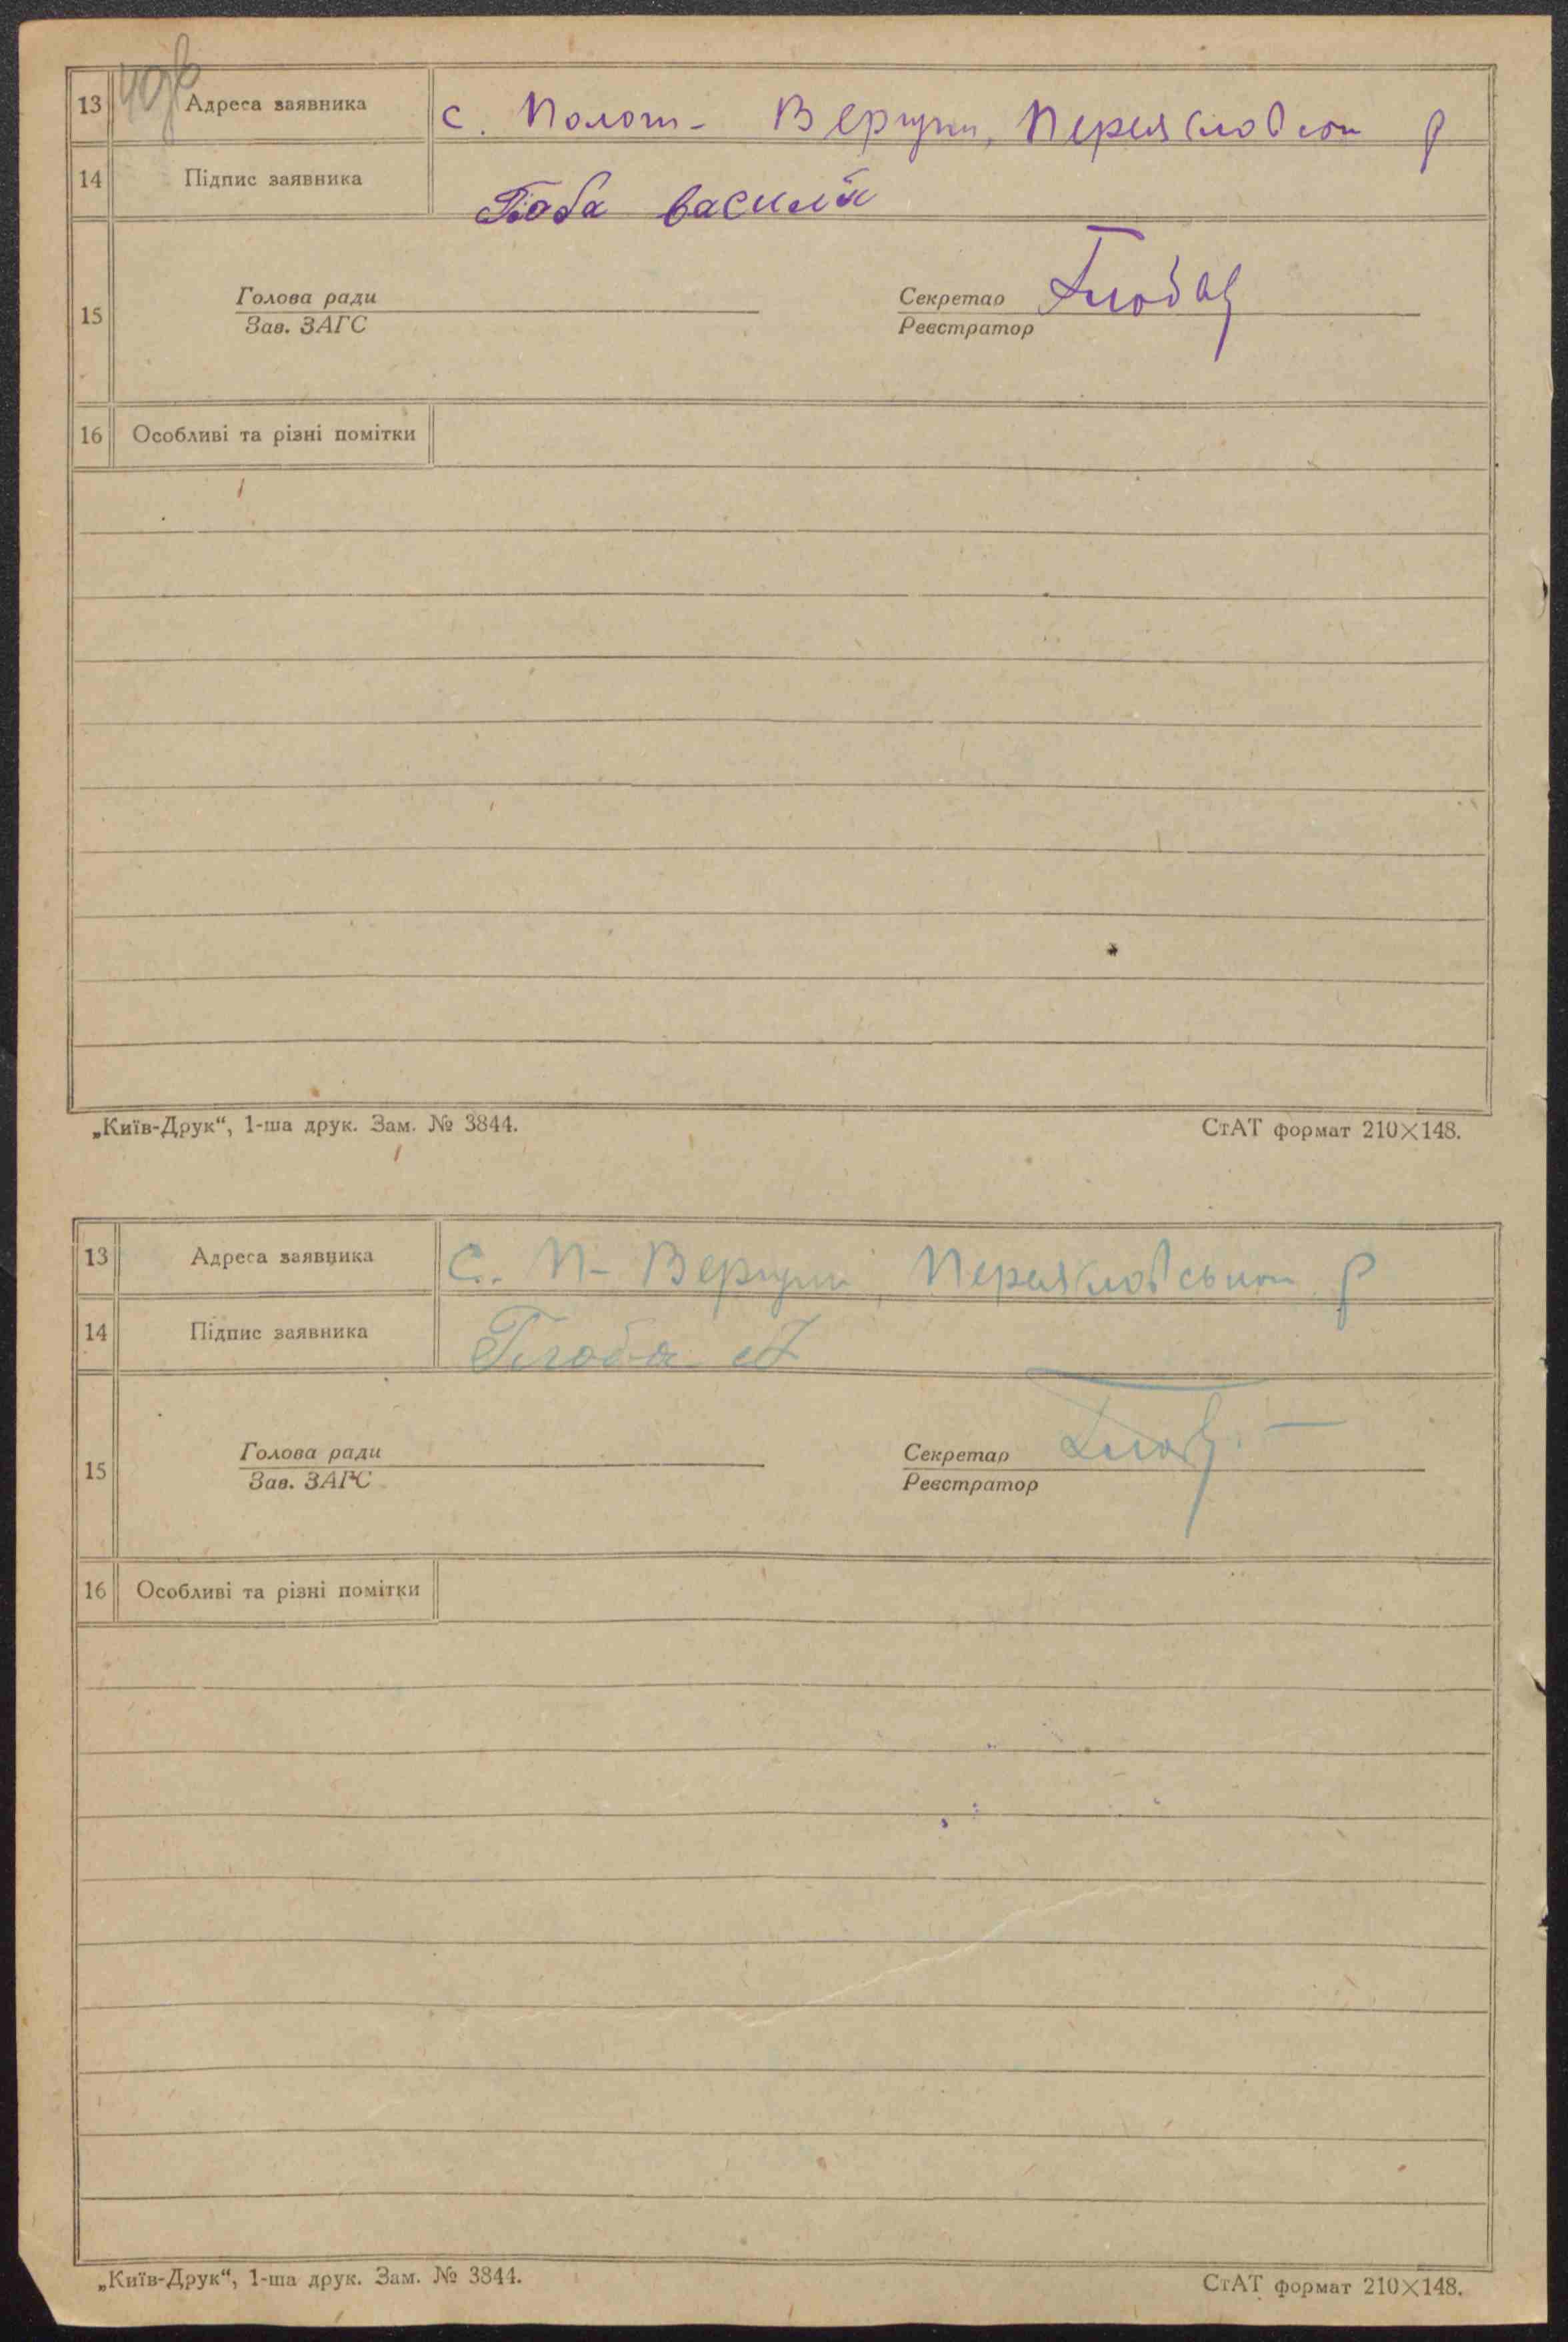 40зв
13 Адреса заявника с. Полог- Вергуни, Переяславськ р
14 Підпис заявника Глоба василь
15 Голова ради Секретар
Зав. ЗАГС Реєстратор
16 Особливі та різні помітки
„Київ-Друк“, 1-ша друк. Зам. № 3844. СтАТ формат 210×148.
13 Адреса заявника с. П- Вергуни, Переяславськ р
14 Підпис заявника Глоба
15 Голова ради Секретар
Зав. ЗАГС Реєстратор
16 Особливі та різні помітки
„Київ-Друк“, 1-ша друк. Зам. № 3844. СтАТ формат 210×148.